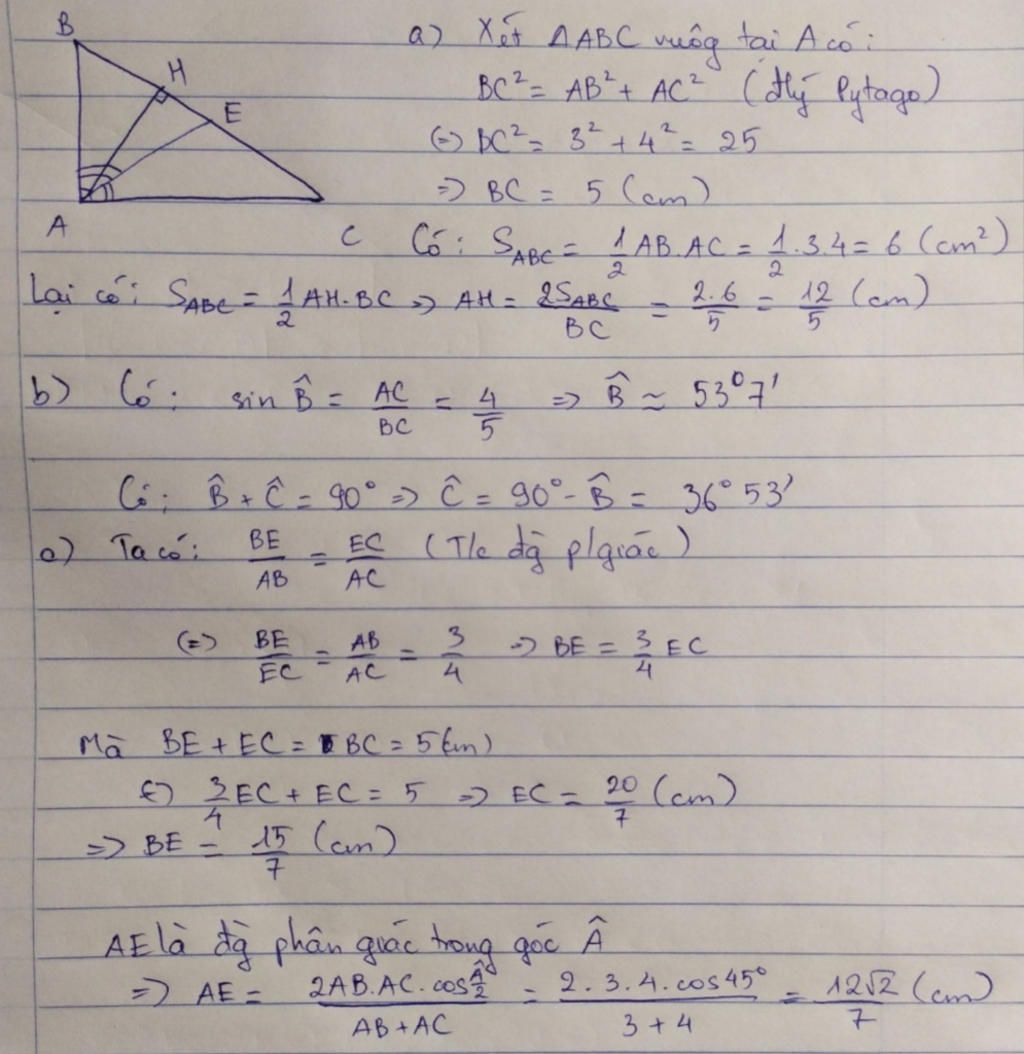 B
H
E
A
C
a) Xét ΔABC vuôg tại A có:
BC² = AB² + AC² (đlý Pytago)
(=) BC² = 3² + 4² = 25
=> BC = 5 (cm)
Có: S_ABC = 1/2 AB.AC = 1/2 .3.4 = 6 (cm²)
Lại có: S_ABC = 1/2 AH.BC => AH = 2S_ABC/BC = 2.6/5 = 12/5 (cm)
b) Có: sin B̂ = AC/BC = 4/5 => B̂ ≈ 53°7'
Có: B̂ + Ĉ = 90° => Ĉ = 90° - B̂ = 36°53'
c) Ta có: BE/AB = EC/AC (T/c đg p/giác)
(=) BE/EC = AB/AC = 3/4 => BE = 3/4 EC
Mà BE + EC = BC = 5 (cm)
(=) 3/4 EC + EC = 5 => EC = 20/7 (cm)
=> BE = 15/7 (cm)
AE là đg phân giác trong góc Â
=> AE = 2AB.AC.cos Â/2 / AB + AC = 2.3.4.cos45° / 3 + 4 = 12√2/7 (cm)